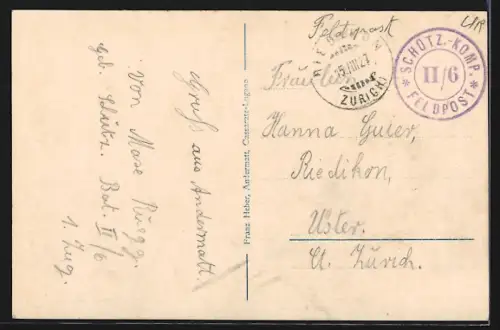 Gruß aus Andermatt.
von Mose Rüegg.
Geb. Schütz. Bat. II/6
1. Zug.
Franz Heber, Andermatt, Cassarate-Lugano
Feldpost
SCHÜTZ.-KOMP.
II/6
* FELDPOST *
ZÜRICH
Fräulein
Hanna Guier,
Riedikon,
Uster.
Ct. Zürich.